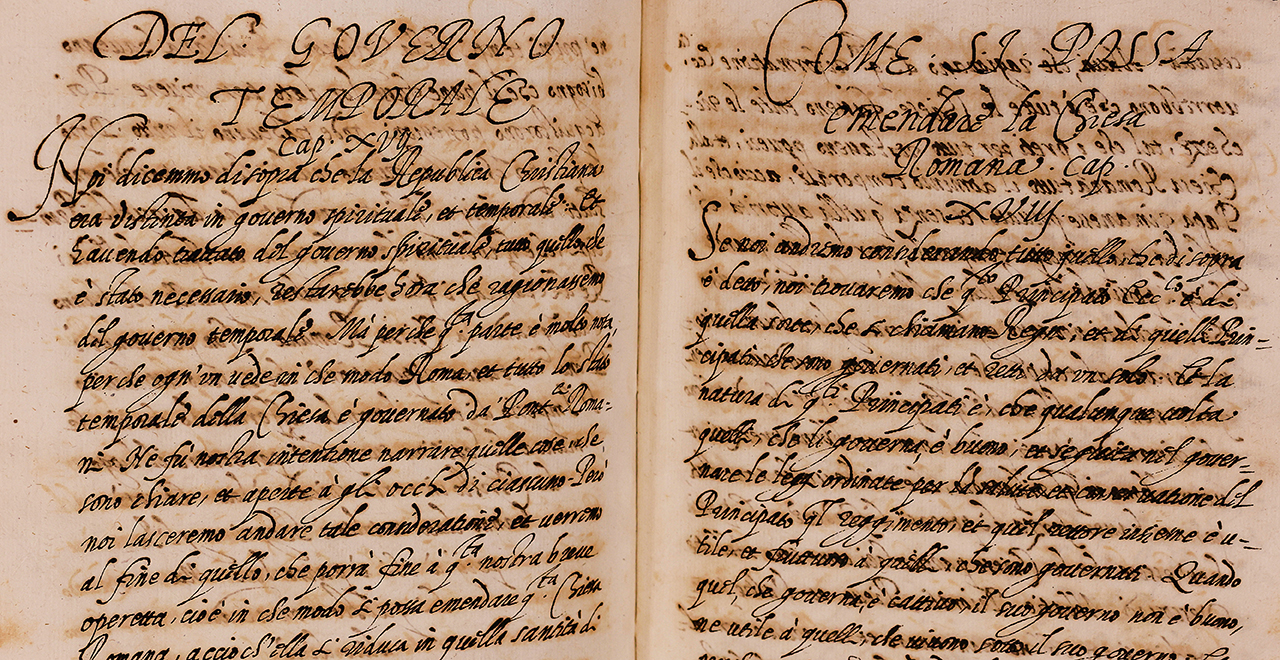 DEL GOVERNO
TEMPORALE
Cap. XVII
Noi dicemmo disopra che la Republica Christiana
era distinta in governo spirituale, et temporale. Et
havendo trattato del governo spirituale, tutto quello, che
è stato necessario, restarebbe hora che ragionassemo
del governo temporale. Mà perche q.ta parte è molto nota,
perche ogn'un vede in che modo Roma, et tuto lo stato
temporale della Chiesa è governato da Pont.ci Roma-
ni. Ne fù nostra intentione narrare quelle cose che
sono chiare, et aperte à gli occhi di ciascuno. Però
noi lasceremo andare tale consideratione, et verremo
al fine di quello, che porrà fine à q.ta nostra breve
operetta, cioè in che modo si possa emendare q.ta Chiesa
Romana, acciò ch'ella si riduca in quella santità di
COME SI POSSA
emendare la Chiesa
Romana. cap.
XVIII
Se noi andremo considerando tutto quello, che disopra
è detto, noi trovaremo che q.to Principato Ecc.co è di
quella sorte, che si chiamano Regni, et di quelli Prin-
cipati che sono governati, et retti da un solo. Et la
natura di q.ti Principati è, che qualunque volta
quelli, che il governa, è buono, et seguita nel gover-
nare le leggi ordinate per la salute et conservatione del
Principato, quel reggimento, et quel rettore insieme è u-
tile, et à quelli, che sono governati. Quando
quel, che governa, è cattivo, il suo governo non è buono,
ne utile à quelli, che vivono sotto il suo governo